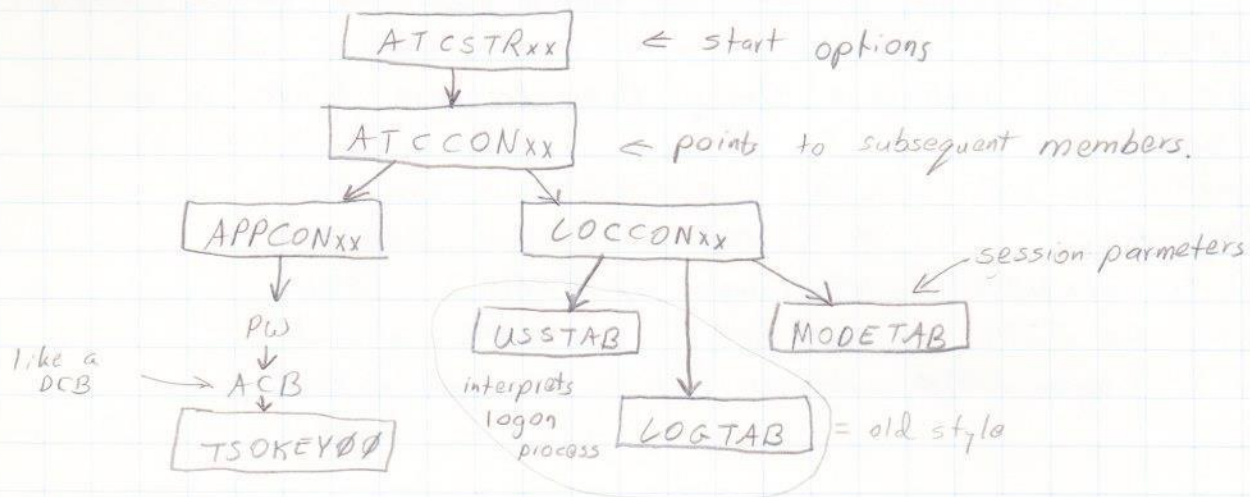 ATCSTRxx ← start options
ATCCONxx ← points to subsequent members.
APPCONxx
LOCCONxx
session parmeters
PW
USSTAB
MODETAB
like a
DCB
ACB
interprets
logon
process
LOGTAB = old style
TSOKEY00